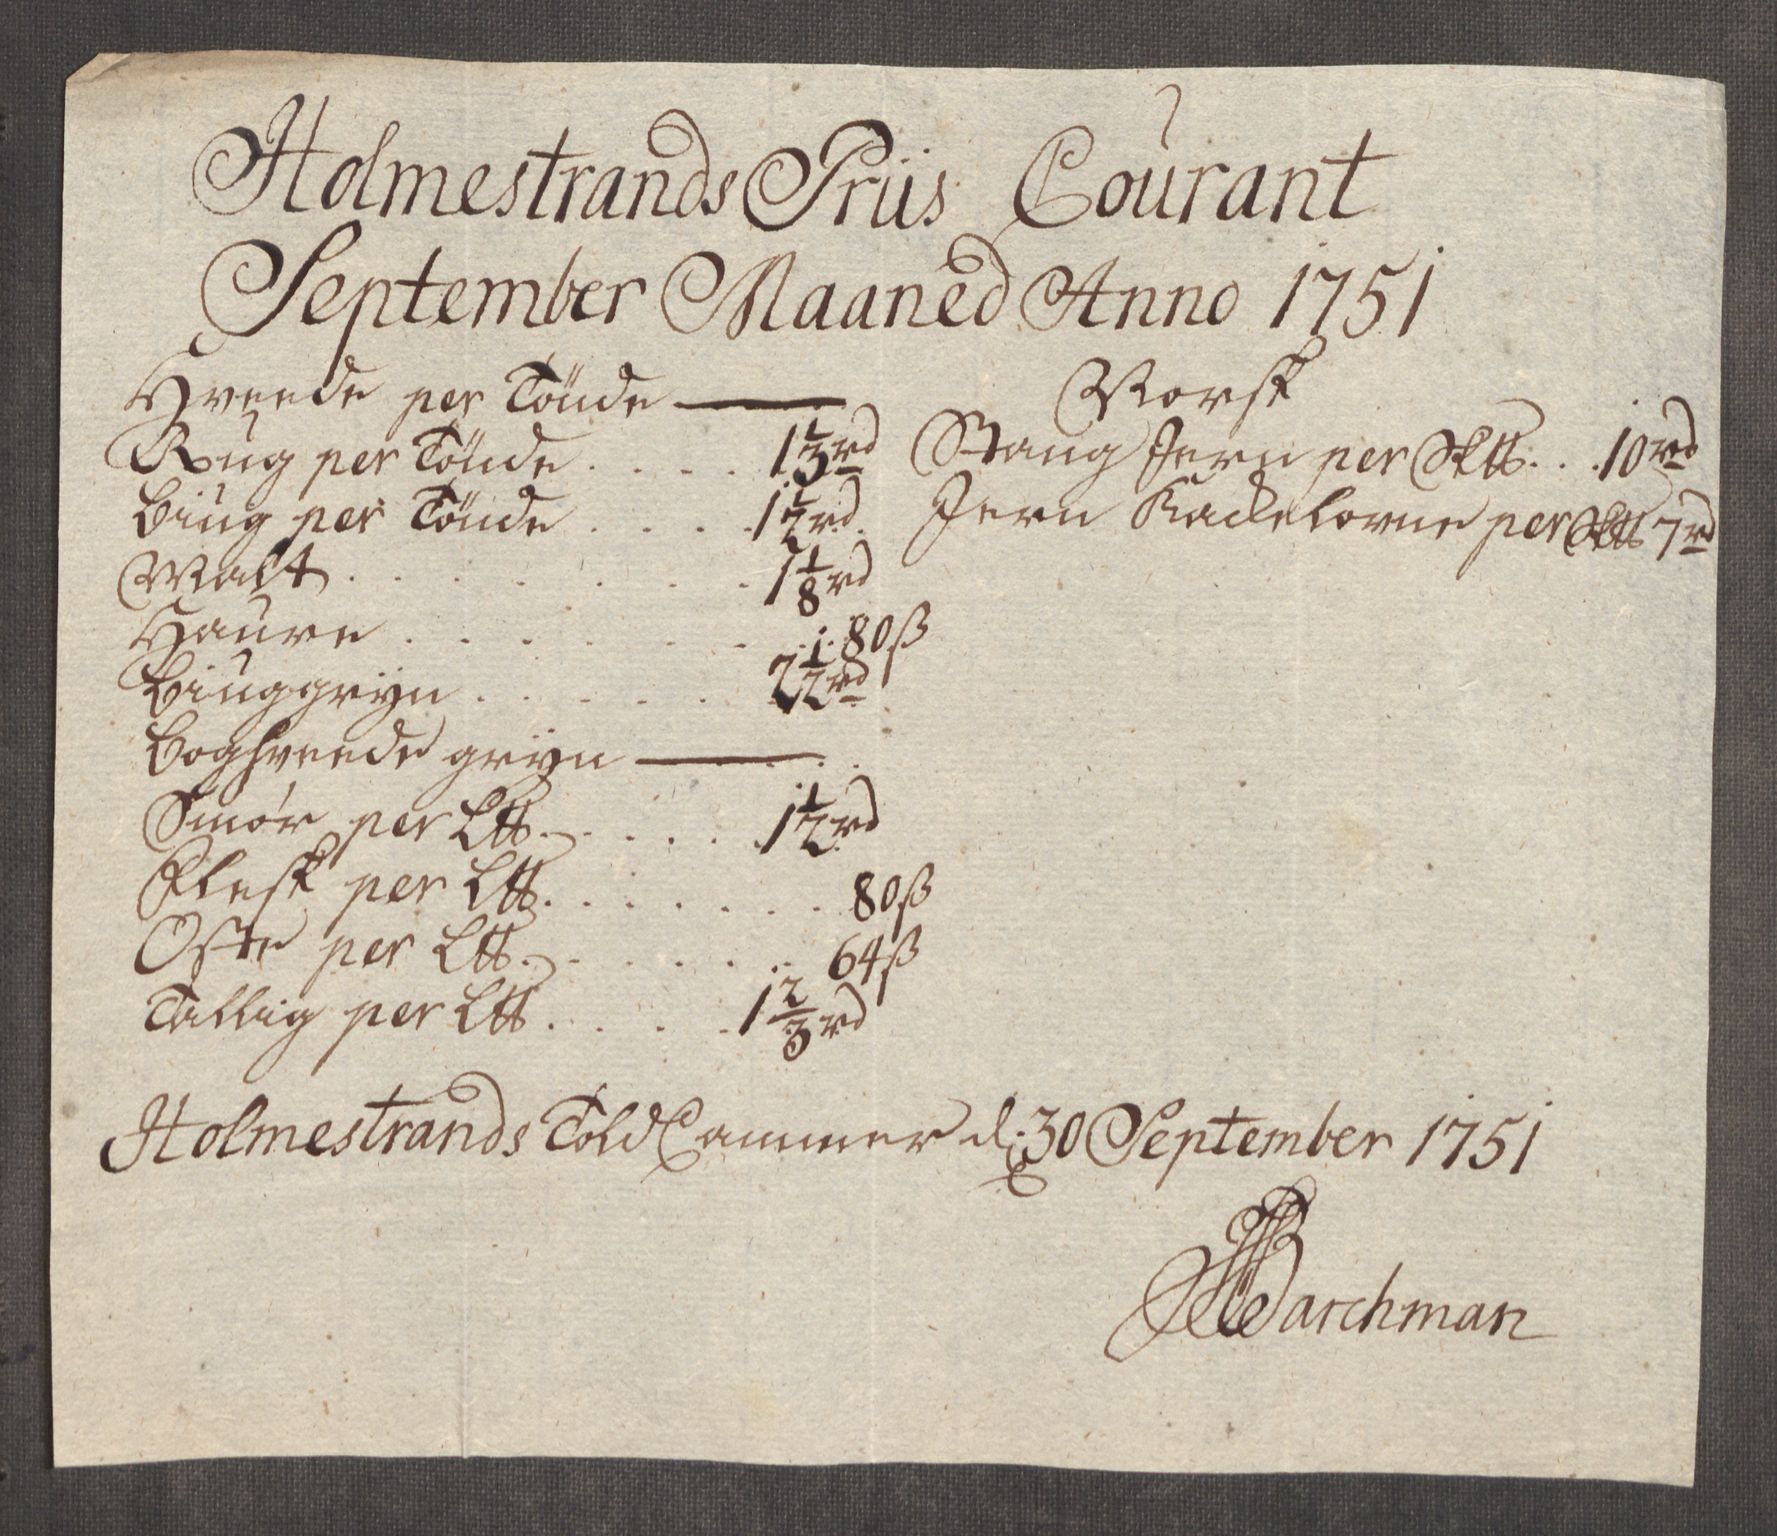 Holmestrands Priis Courant
September Maaned Anno 1751
Hveede per Tönde
Rug per Tönde . . . . 1 1/3 rd
Biug per Tönde . . . . 1 1/2 rd.
Malt . . . . . . . . 1 1/8 rd
Haure . . . . . . . . 80 ß
Biuggryn . . . . . . 2 1/2 rd
Boghveede gryn
Smör per L℔ . . . . . 1 1/2 rd
Flesk per L℔ . . . . . . . 80 ß
Oste per L℔ . . . . . . 64 ß
Tallig per L℔ . . . . 1 2/3 rd
Norsk
Stang Jern per Sk℔ . . . 10 rd
Jern Kackelovne per Sk℔ 7 rd
Holmestrands Told Cammer d: 30 September 1751
Barchman